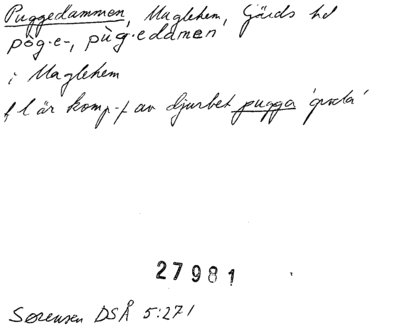 Puggedammen, Maglehem, Gärds hd
pòg·e-, pùg·edamen
i Maglehem
f l är komp-f av djurbet pugga 'groda'
27981
Sørensen DSÅ 5:271